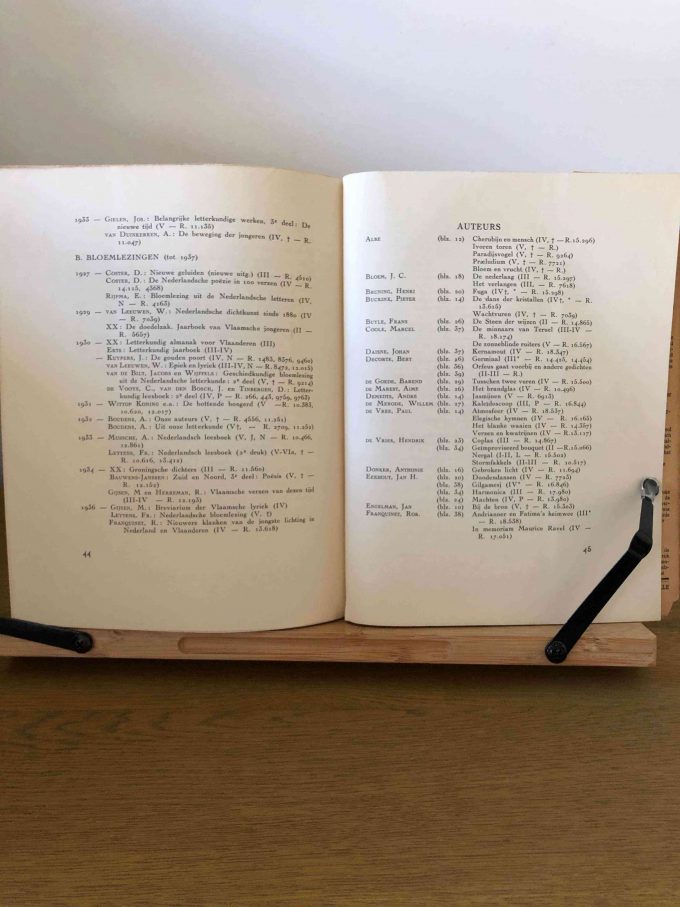 1933 — GIELEN, JOS.: Belangrijke letterkundige werken, 3e deel: De
nieuwe tijd (V — R. 11.135)
VAN DUINKERKEN, A.: De beweging der jongeren (IV, † — R.
11.047)
B. BLOEMLEZINGEN (tot 1937)
1927 — COSTER, D.: Nieuwe geluiden (nieuwe uitg.) (III — R. 4610)
COSTER, D.: De Nederlandsche poëzie in 100 verzen (IV — R.
14.125, 4368)
RIJPMA, E.: Bloemlezing uit de Nederlandsche letteren (IV,
N — R. 4163)
1929 — VAN LEEUWEN, W.: Nederlandsche dichtkunst sinds 1880 (IV
— R. 7039)
XX: De doedelzak. Jaarboek van Vlaamsche jongeren (II —
R. 5657)
1930 — XX: Letterkundig almanak voor Vlaanderen (III)
EXTS: Letterkundig jaarboek (III-IV)
— KUYPERS, J.: De gouden poort (IV, N — R. 1483, 8576, 9460)
VAN LEEUWEN, W.: Epiek en lyriek (III-IV, N — R. 8472, 12.015)
VAN DE BILT, JACOBS en WIJFFELS: Geschiedkundige bloemlezing
uit de Nederlandsche letterkunde: 2e deel (V, † — R. 9214)
DE VOOYS, C., VAN DEN BOSCH, J. en TINBERGEN, D.: Letter-
kundig leesboek: 2e deel (IV, P — R. 266, 443, 9759, 9763)
1931 — WITTOP KONING e.a.: De bottende boogerd (V — R. 10.383,
10.620, 12.017)
1932 — BOUDENS, A.: Onze auteurs (V, † — R. 4556, 11.261)
BOUDENS, A.: Uit onze letterkunde (V†, — R. 2709, 11.262)
1933 — MUSSCHE, A.: Nederlandsch leesboek (V, J, N — R. 10.466,
12.861)
LEYTENS, FR.: Nederlandsch leesboek (2e druk) (V-VIa, † —
R. 10.616, 13.412)
1934 — XX: Groningsche dichters (III — R. 21.560)
BAUWENS-JANSSEN: Zuid en Noord, 3e deel: Poësis (V, † —
R. 12.152)
GIJSEN, M en HERREMAN, R.: Vlaamsche verzen van dezen tijd
(III-IV — R. 12.193)
1936 — GIJSEN, M.: Breviarium der Vlaamsche lyriek (IV)
LEYTENS, FR.: Nederlandsche bloemlezing (V. †)
FRANQUINET, R.: Nieuwere klanken van de jongste lichting in
Nederland en Vlaanderen (IV — R. 13.618)
44
AUTEURS
ALBE (blz. 12) Cherubijn en mensch (IV, † — R.15.296)
Ivoren toren (V, † — R.)
Paradijsvogel (V, † — R. 9264)
Præludium (V, † — R. 7721)
Bloem en vrucht (IV, † — R.)
BLOEM, J. C. (blz. 18) De nederlaag (III — R. 15.297)
Het verlangen (III, R. 7618)
BRUNING, HENRI (blz. 10) Fuga (IV†, * — R. 15.298)
BUCKINX, PIETER (blz. 14) De dans der kristallen (IV†, * — R.
13.615)
Wachtvuren (IV, † — R. 7039)
BUYLE, FRANS (blz. 26) De Steen der wijzen (II — R. 14.865)
COOLE, MARCEL (blz. 37) De minnaars van Tersel (III-IV —
R. 18.174)
De zonneblinde ruiters (V — R. 16.567)
DAISNE, JOHAN (blz. 37) Kernamout (IV — R. 18.347)
DECORTE, BERT (blz. 26) Germinal (III* — R. 14.415, 14.464)
(blz. 36) Orfeus gaat voorbij en andere gedichten
(blz. 39) (II-III — R.)
DE GOEDE, BAREND (blz. 19) Tusschen twee vuren (IV — R. 15.500)
DE MAREST, AIMÉ (blz. 26) Het brandglas (IV — R. 10.496)
DEMEDTS, ANDRE (blz. 14) Jasmijnen (V — R. 6913)
DE MERODE, WILLEM (blz. 27) Kaleidoscoop (III, P — R. 16.844)
DE VREE, PAUL (blz. 14) Atmosfeer (IV — R. 18.537)
Elegische hymnen (IV — R. 16.165)
Het blanke waaien (IV — R. 14.357)
Verzen en kwatrijnen (IV — R.13.117)
DE VRIES, HENDRIK (blz. 23) Coplas (III — R. 14.867)
(blz. 34) Geïmproviseerd bouquet (II — R.15.066)
Nergal (I-II, L — R. 15.502)
Stormfakkels (II-III — R. 10.517)
DONKER, ANTHONIE (blz. 16) Gebroken licht (IV — R. 11.694)
EEKHOUT, JAN H. (blz. 20) Doodendansen (IV — R. 7725)
(blz. 38) Gilgamesj (IV* — R. 16.846)
(blz. 34) Harmonica (III — R. 17.980)
(blz. 24) Machten (IV, P — R. 13.980)
ENGELMAN, JAN (blz. 10) Bij de bron (V, † — R. 15.303)
FRANQUINET, ROB. (blz. 38) Andriaaner en Fatima's heimwee (III*
— R. 18.538)
In memoriam Maurice Ravel (IV —
R. 17.051)
45